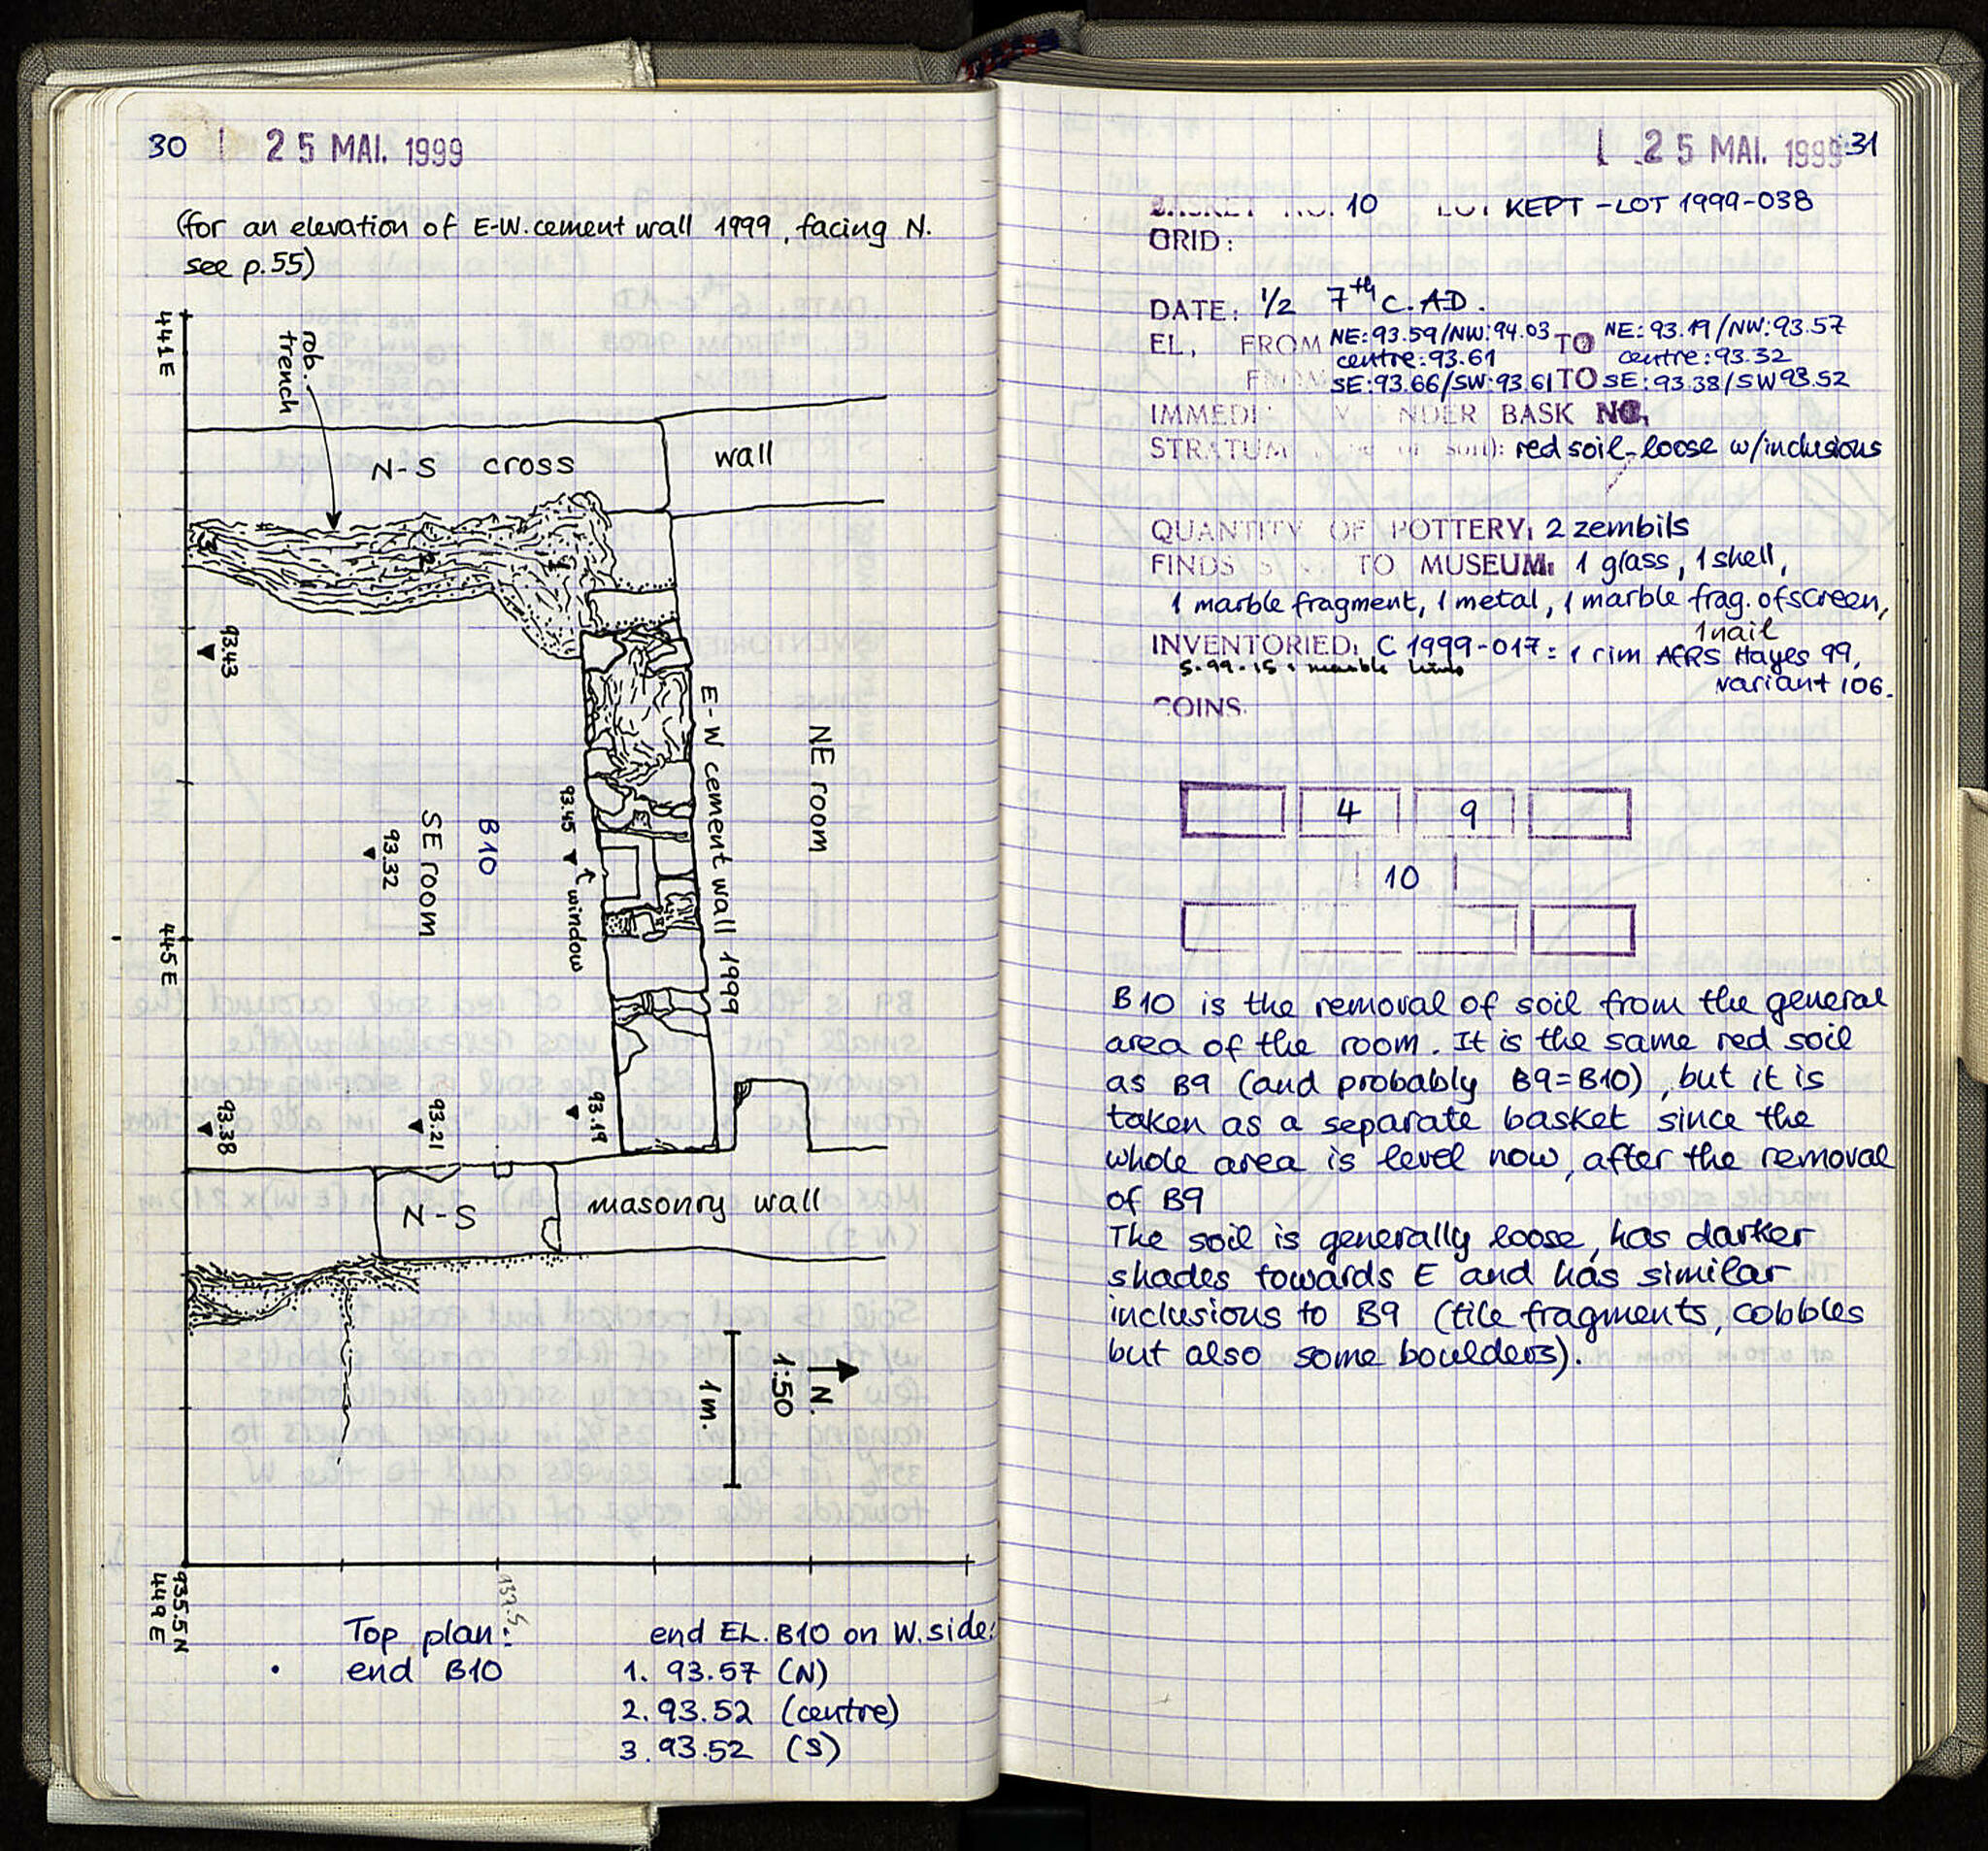 30 25 MAI. 1999
(for an elevation of E-W. cement wall 1999, facing N.
see p. 55)
441 E
rob.
trench
N-S cross wall
93.43
E-W cement wall 1999
NE room
93.45
window
B10
SE room
93.32
445 E
93.38
93.21
93.19
N-S masonry wall
N.
1:50
1 m.
935.5 N
449 E
Top plan:
end B10
end EL. B10 on W. side:
1. 93.57 (N)
2. 93.52 (centre)
3. 93.52 (S)
25 MAI. 1999 31
BASKET NO. 10 LOT KEPT - LOT 1999-038
GRID:
DATE: 1/2 7th C. AD.
EL. FROM NE: 93.59/NW: 94.03 TO NE: 93.19/NW: 93.57
centre: 93.61 centre: 93.32
FROM SE: 93.66/SW: 93.61 TO SE: 93.38/SW 93.52
IMMEDI NDER BASK NO.
STRATUM soil): red soil-loose w/inclusions
QUANTITY OF POTTERY: 2 zembils
FINDS TO MUSEUM: 1 glass, 1 shell,
1 marble fragment, 1 metal, 1 marble frag. of screen,
1 nail
INVENTORIED: C 1999-017 = 1 rim AfRS Hayes 99,
variant 106.
S-99-15: marble
COINS
4 9
10
B10 is the removal of soil from the general
area of the room. It is the same red soil
as B9 (and probably B9=B10), but it is
taken as a separate basket since the
whole area is level now, after the removal
of B9
The soil is generally loose, has darker
shades towards E and has similar
inclusions to B9 (tile fragments, cobbles
but also some boulders).